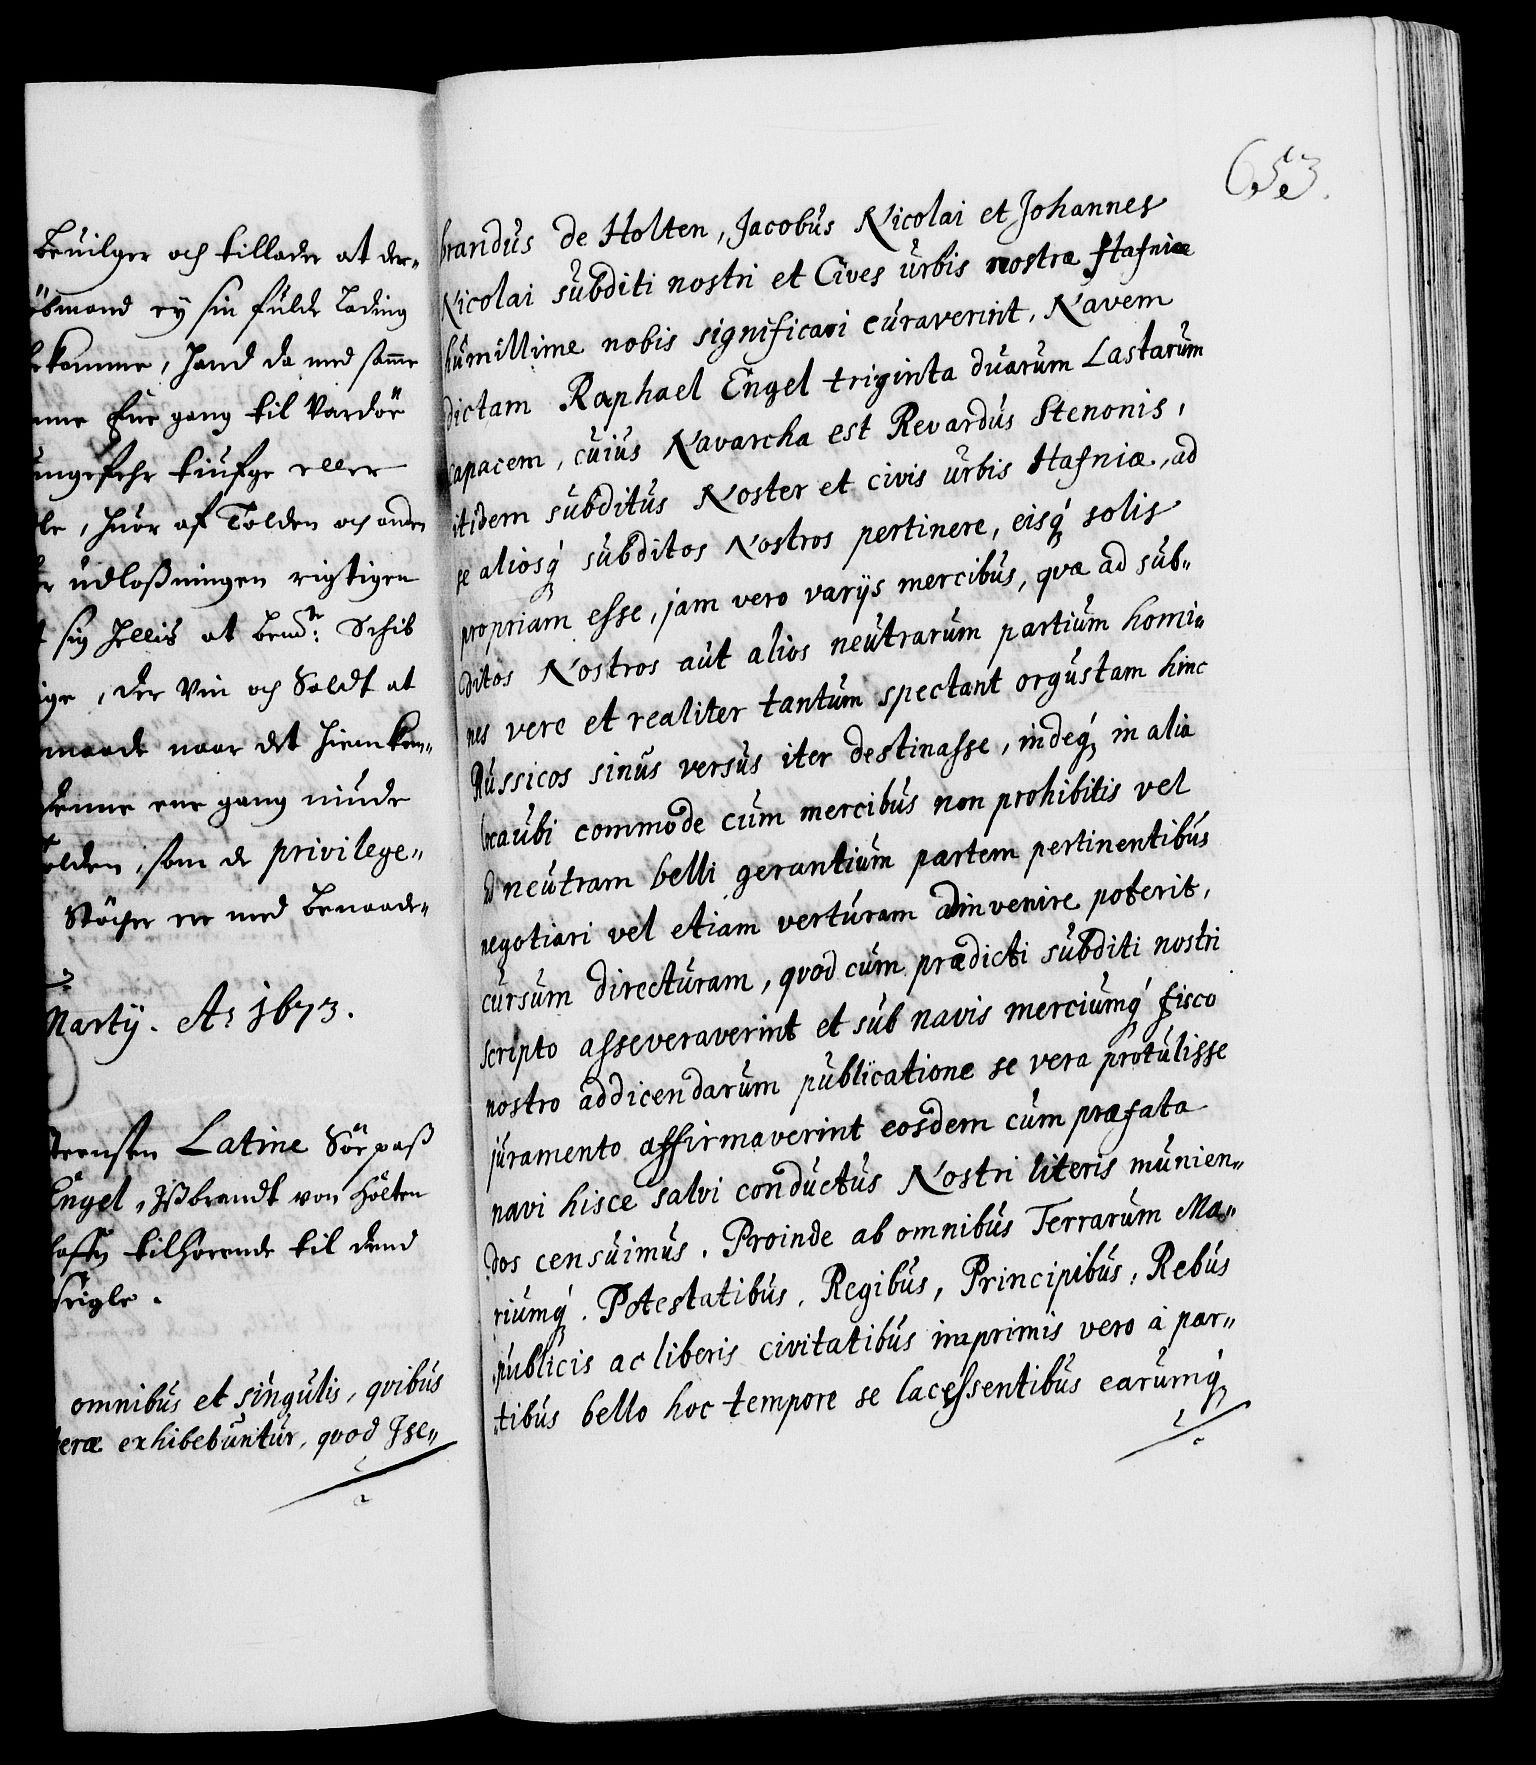 beuilger och tillader at der„
Kiöbmand ey sin fulde Lading
bekomme, hand da med samme
Eene gang til Vardöe
ungefehr tiufge eller
, huor af Tolden och anden
udloßningen rigtigen
sig ellis at bemte: Schib
, der Viin och Saldt at
maade naar det hiemkom„
denne ene gang niude
Tolden, som de privilege„
er med benaade„
Marty. Ao 1673.
Latine Söe paß
Engel, Ißbrandt von Holten
tilhörende til dend
seigle.
omnibus et singulis, qvibus
teræ exhibebuntur, qvod Ise„
653.
brandus de Holten, Jacobus Nicolai et Johannes
Nicolai subditi nostri et Cives urbis nostræ Hafniæ
humillime nobis significari curaverint, Navem
dictam Raphael Engel triginta duarum Lastarum
capacem, cuius Navarcha est Revardus Stenonis,
itidem subditus Noster et civis urbis Hafniæ, ad
se aliosq́ subditos Nostros pertinere, eisq́ solis
propriam esse, jam vero varijs mercibus, qvæ ad sub„
ditos Nostros aut alios neutrarum partium homi„
nes vere et realiter tantum spectant orgustam hinc
Russicos sinus versus iter destinasse, indeq́ in alia
loca ubi commode cum mercibus non prohibitis vel
ad neutram belli gerantium partem pertinentibus
negotiari vel etiam verturam adinvenire poterit,
cursum directuram, qvod cum prædicti subditi nostri
scripto asseveraverint et sub navis merciumq́ fisco
nostro addicendarum publicatione se vera protulisse
juramento affirmaverint eosdem cum præfata
navi hisce salvi conductus Nostri literis munien„
dos censuimus. Proinde ab omnibus Terrarum Ma„
riumq́. Potestatibus, Regibus, Principibus, Rebus
publicis ac liberis civitatibus imprimis vero à par„
tibus bello hoc tempore se lacessentibus earumq́